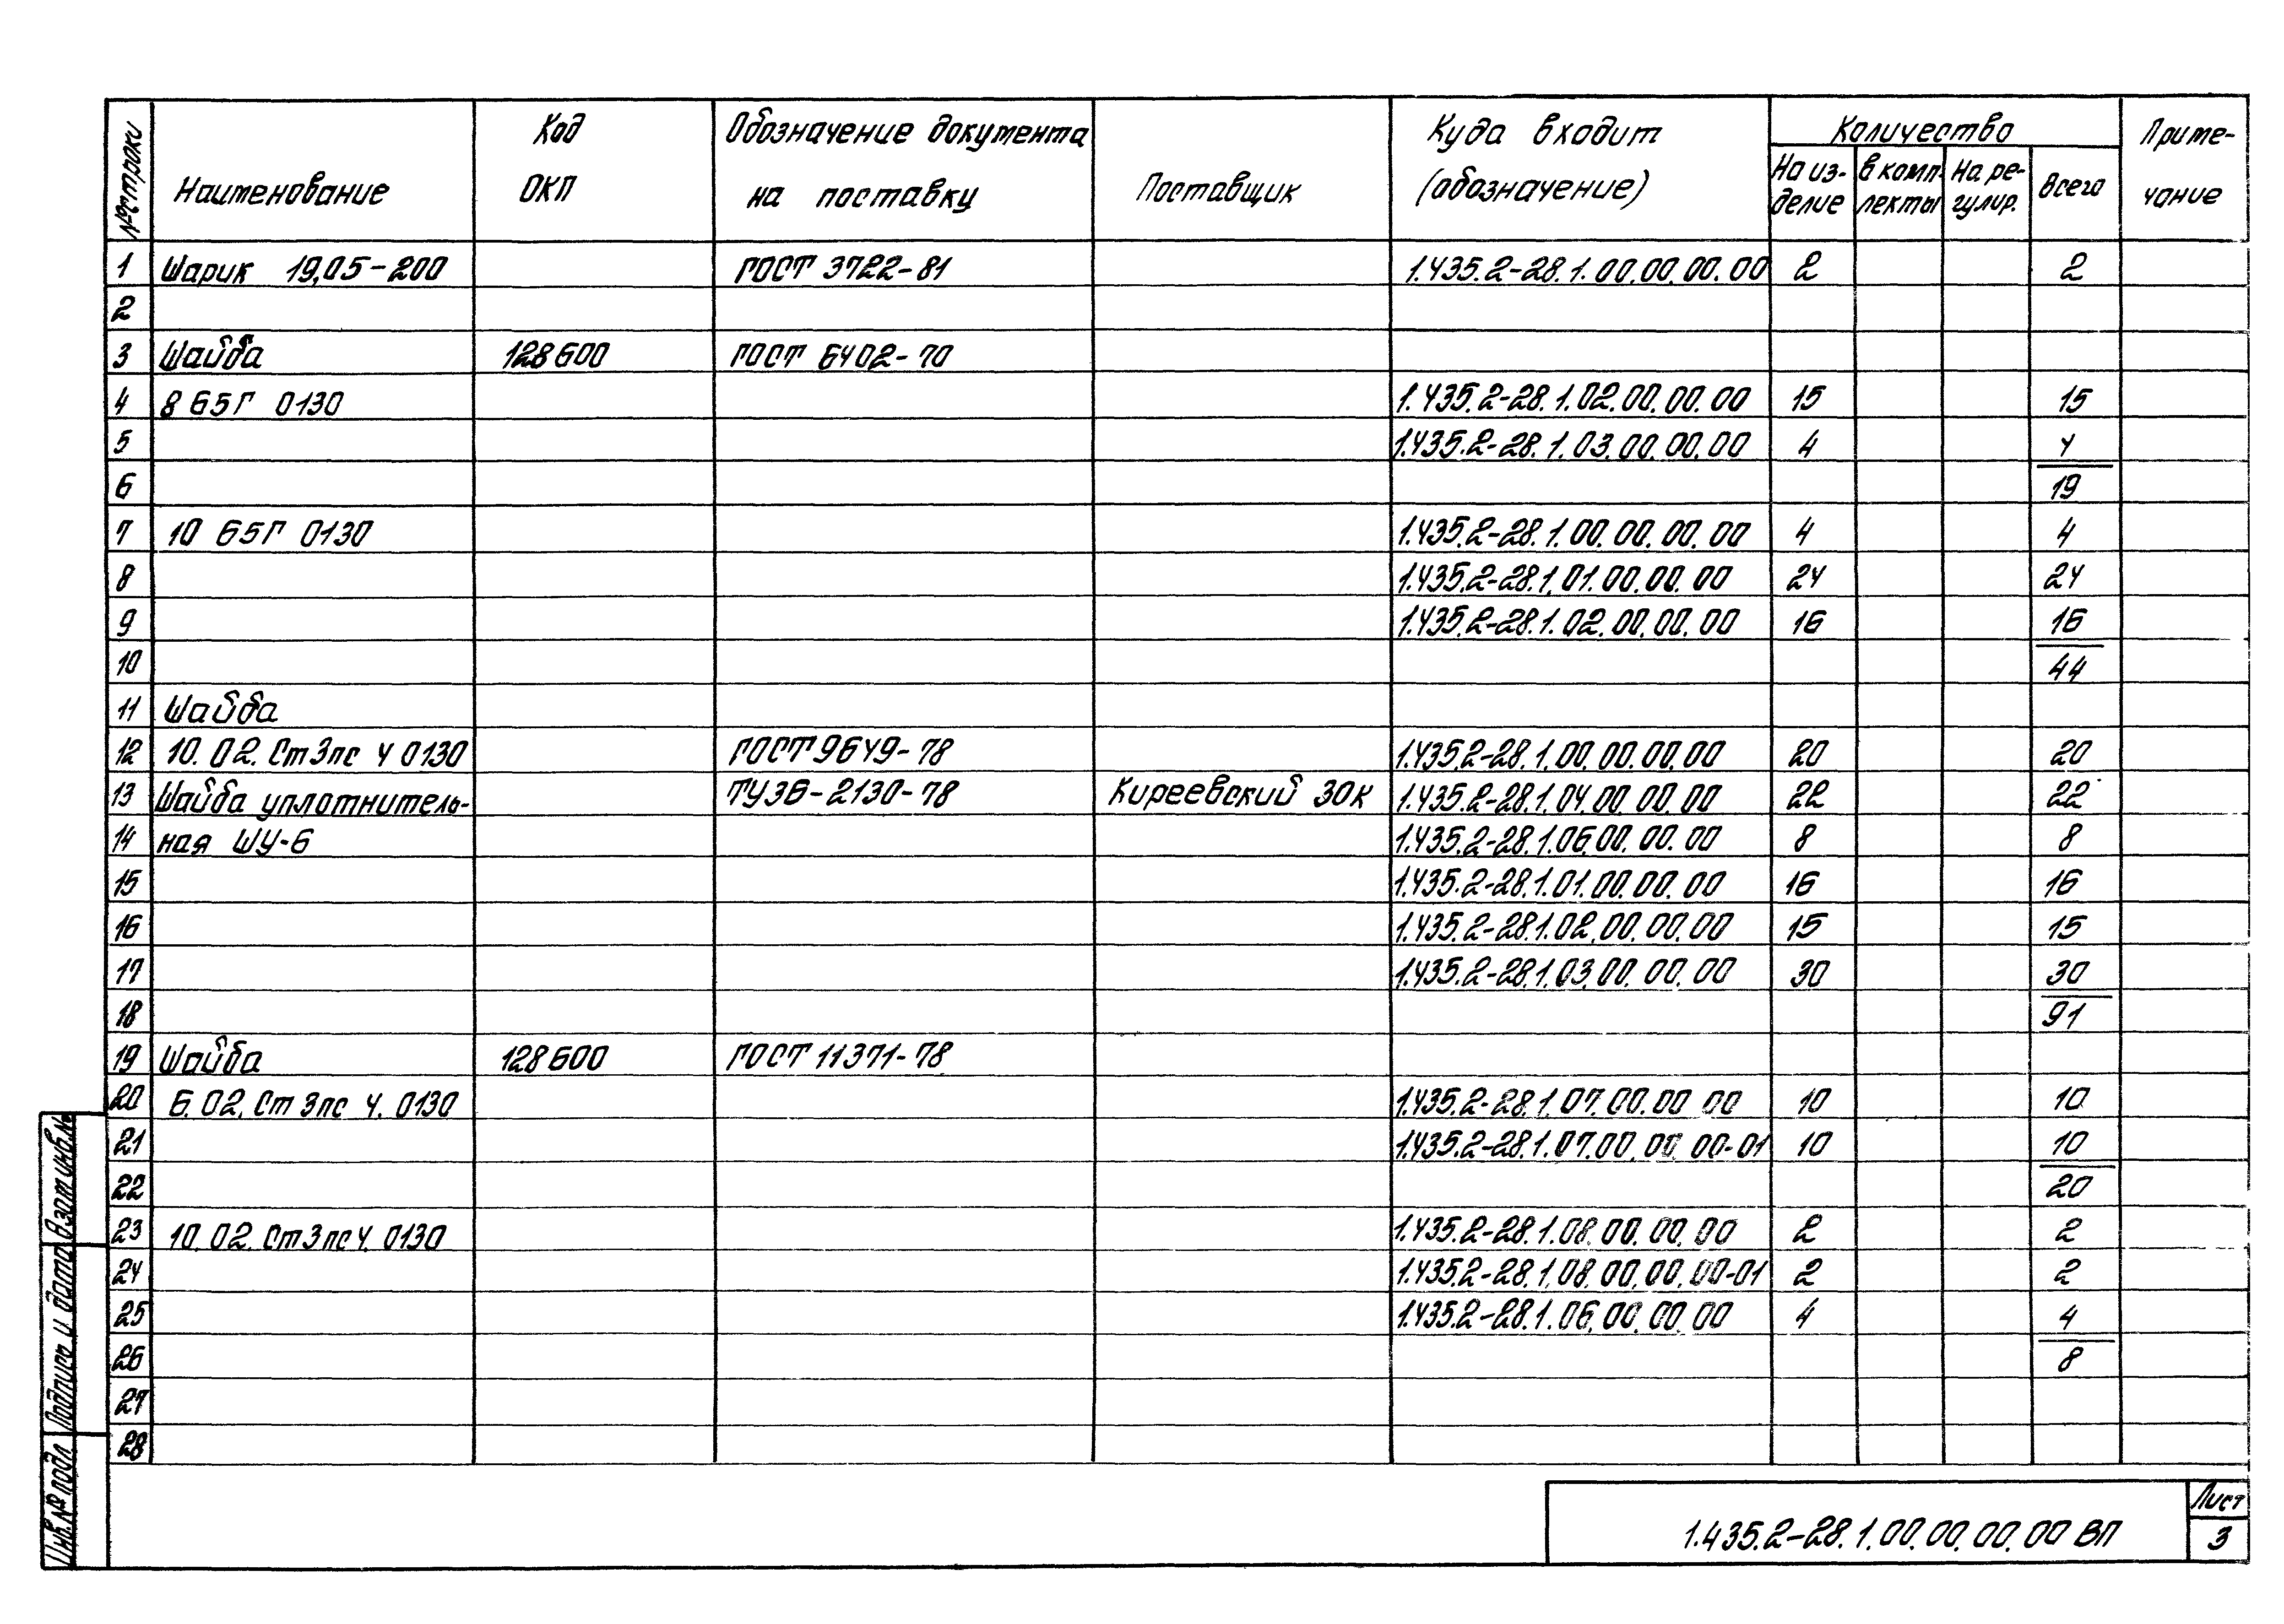 № строки Наименование Код ОКП Обозначение документа на поставку Поставщик Куда входит (обозначение) Количество Приме-чание
На из-делие в комп-лекты На ре-гулир. Всего
1 Шарик 19,05-200 ГОСТ 3722-81 1.435.2-28.1.00.00.00.00 2 2
2
3 Шайба 128600 ГОСТ 6402-70
4 8 65Г 0130 1.435.2-28.1.02.00.00.00 15 15
5 1.435.2-28.1.03.00.00.00 4 4
6 19
7 10 65Г 0130 1.435.2-28.1.00.00.00.00 4 4
8 1.435.2-28.1.01.00.00.00 24 24
9 1.435.2-28.1.02.00.00.00 16 16
10 44
11 Шайба
12 10.02.Ст3пс 4 0130 ГОСТ 9649-78 1.435.2-28.1.00.00.00.00 20 20
13 Шайба уплотнитель- ТУ36-2130-78 Киреевский ЗОК 1.435.2-28.1.04.00.00.00 22 22
14 ная ШУ-6 1.435.2-28.1.06.00.00.00 8 8
15 1.435.2-28.1.01.00.00.00 16 16
16 1.435.2-28.1.02.00.00.00 15 15
17 1.435.2-28.1.03.00.00.00 30 30
18 91
19 Шайба 128600 ГОСТ 11371-78
20 6.02.Ст3пс 4.0130 1.435.2-28.1.07.00.00 00 10 10
21 1.435.2-28.1.07.00.00 00-01 10 10
22 20
23 10.02.Ст3пс4.0130 1.435.2-28.1.08.00.00.00 2 2
24 1.435.2-28.1.08.00.00.00-01 2 2
25 1.435.2-28.1.06.00.00.00 4 4
26 8
27
28
Инв.№ подл. Подпись и дата Взам.инв.№
1.435.2-28.1.00.00.00.00 ВП
Лист
3